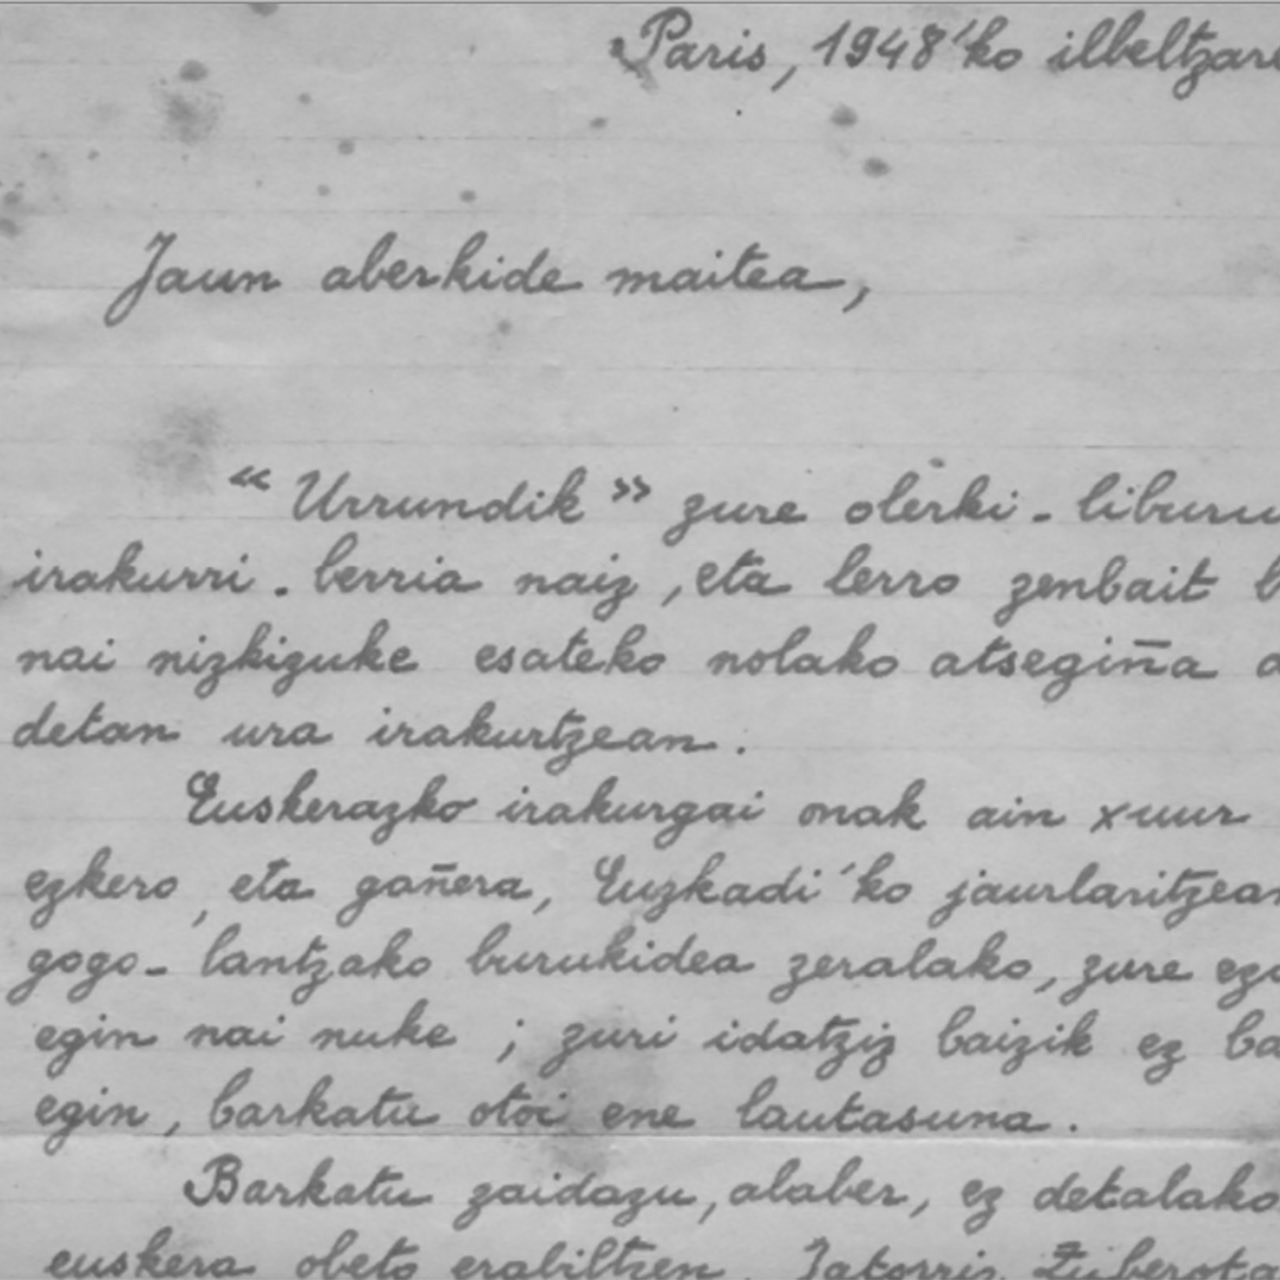 Paris, 1948'ko ilbeltzare
Jaun aberkide maitea,
« Urrundik » zure olerki - liburu
irakurri - berria naiz, eta lerro zenbait b
nai nizkizuke esateko nolako atsegiña a
detan ura irakurtzean.
Euskerazko irakurgai onak ain xuur
ezkero, eta gañera, Euzkadi'ko jaurlaritzean
gogo - lantzako burukidea zeralako, zure eza
egin nai nuke ; zuri idatziz baizik ez ba
egin, barkatu otoi ene lautasuna.
Barkatu zaidazu, alaber, ez detalako
euskera obeto erabiltzen. Jatorriz Zuberota